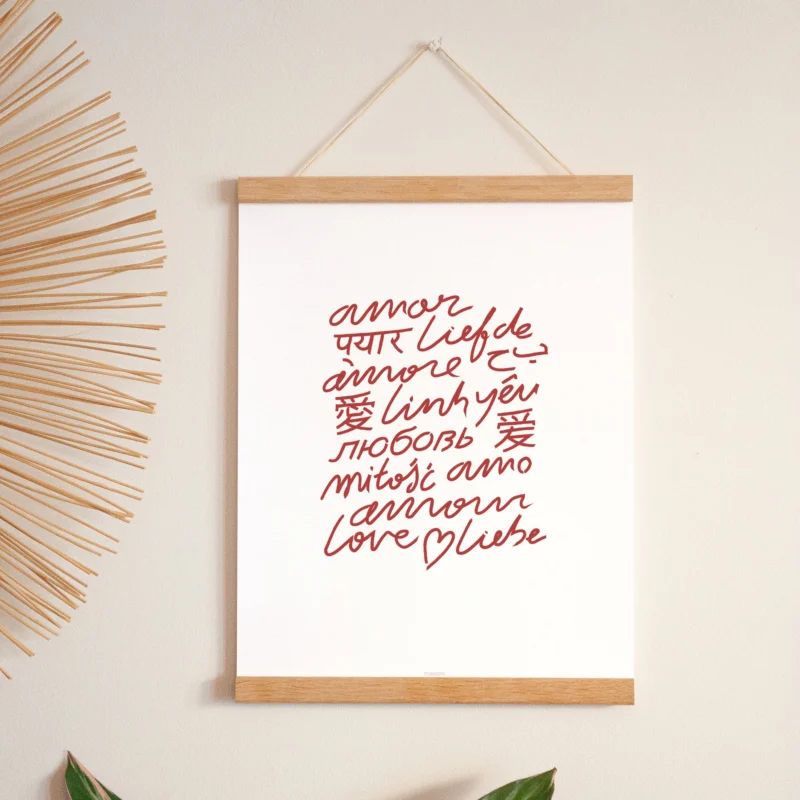 amor
प्यार liefde
amore ب ح
愛 linh yêu
любовь 爱
miłość amo
amour
love ♡ liebe